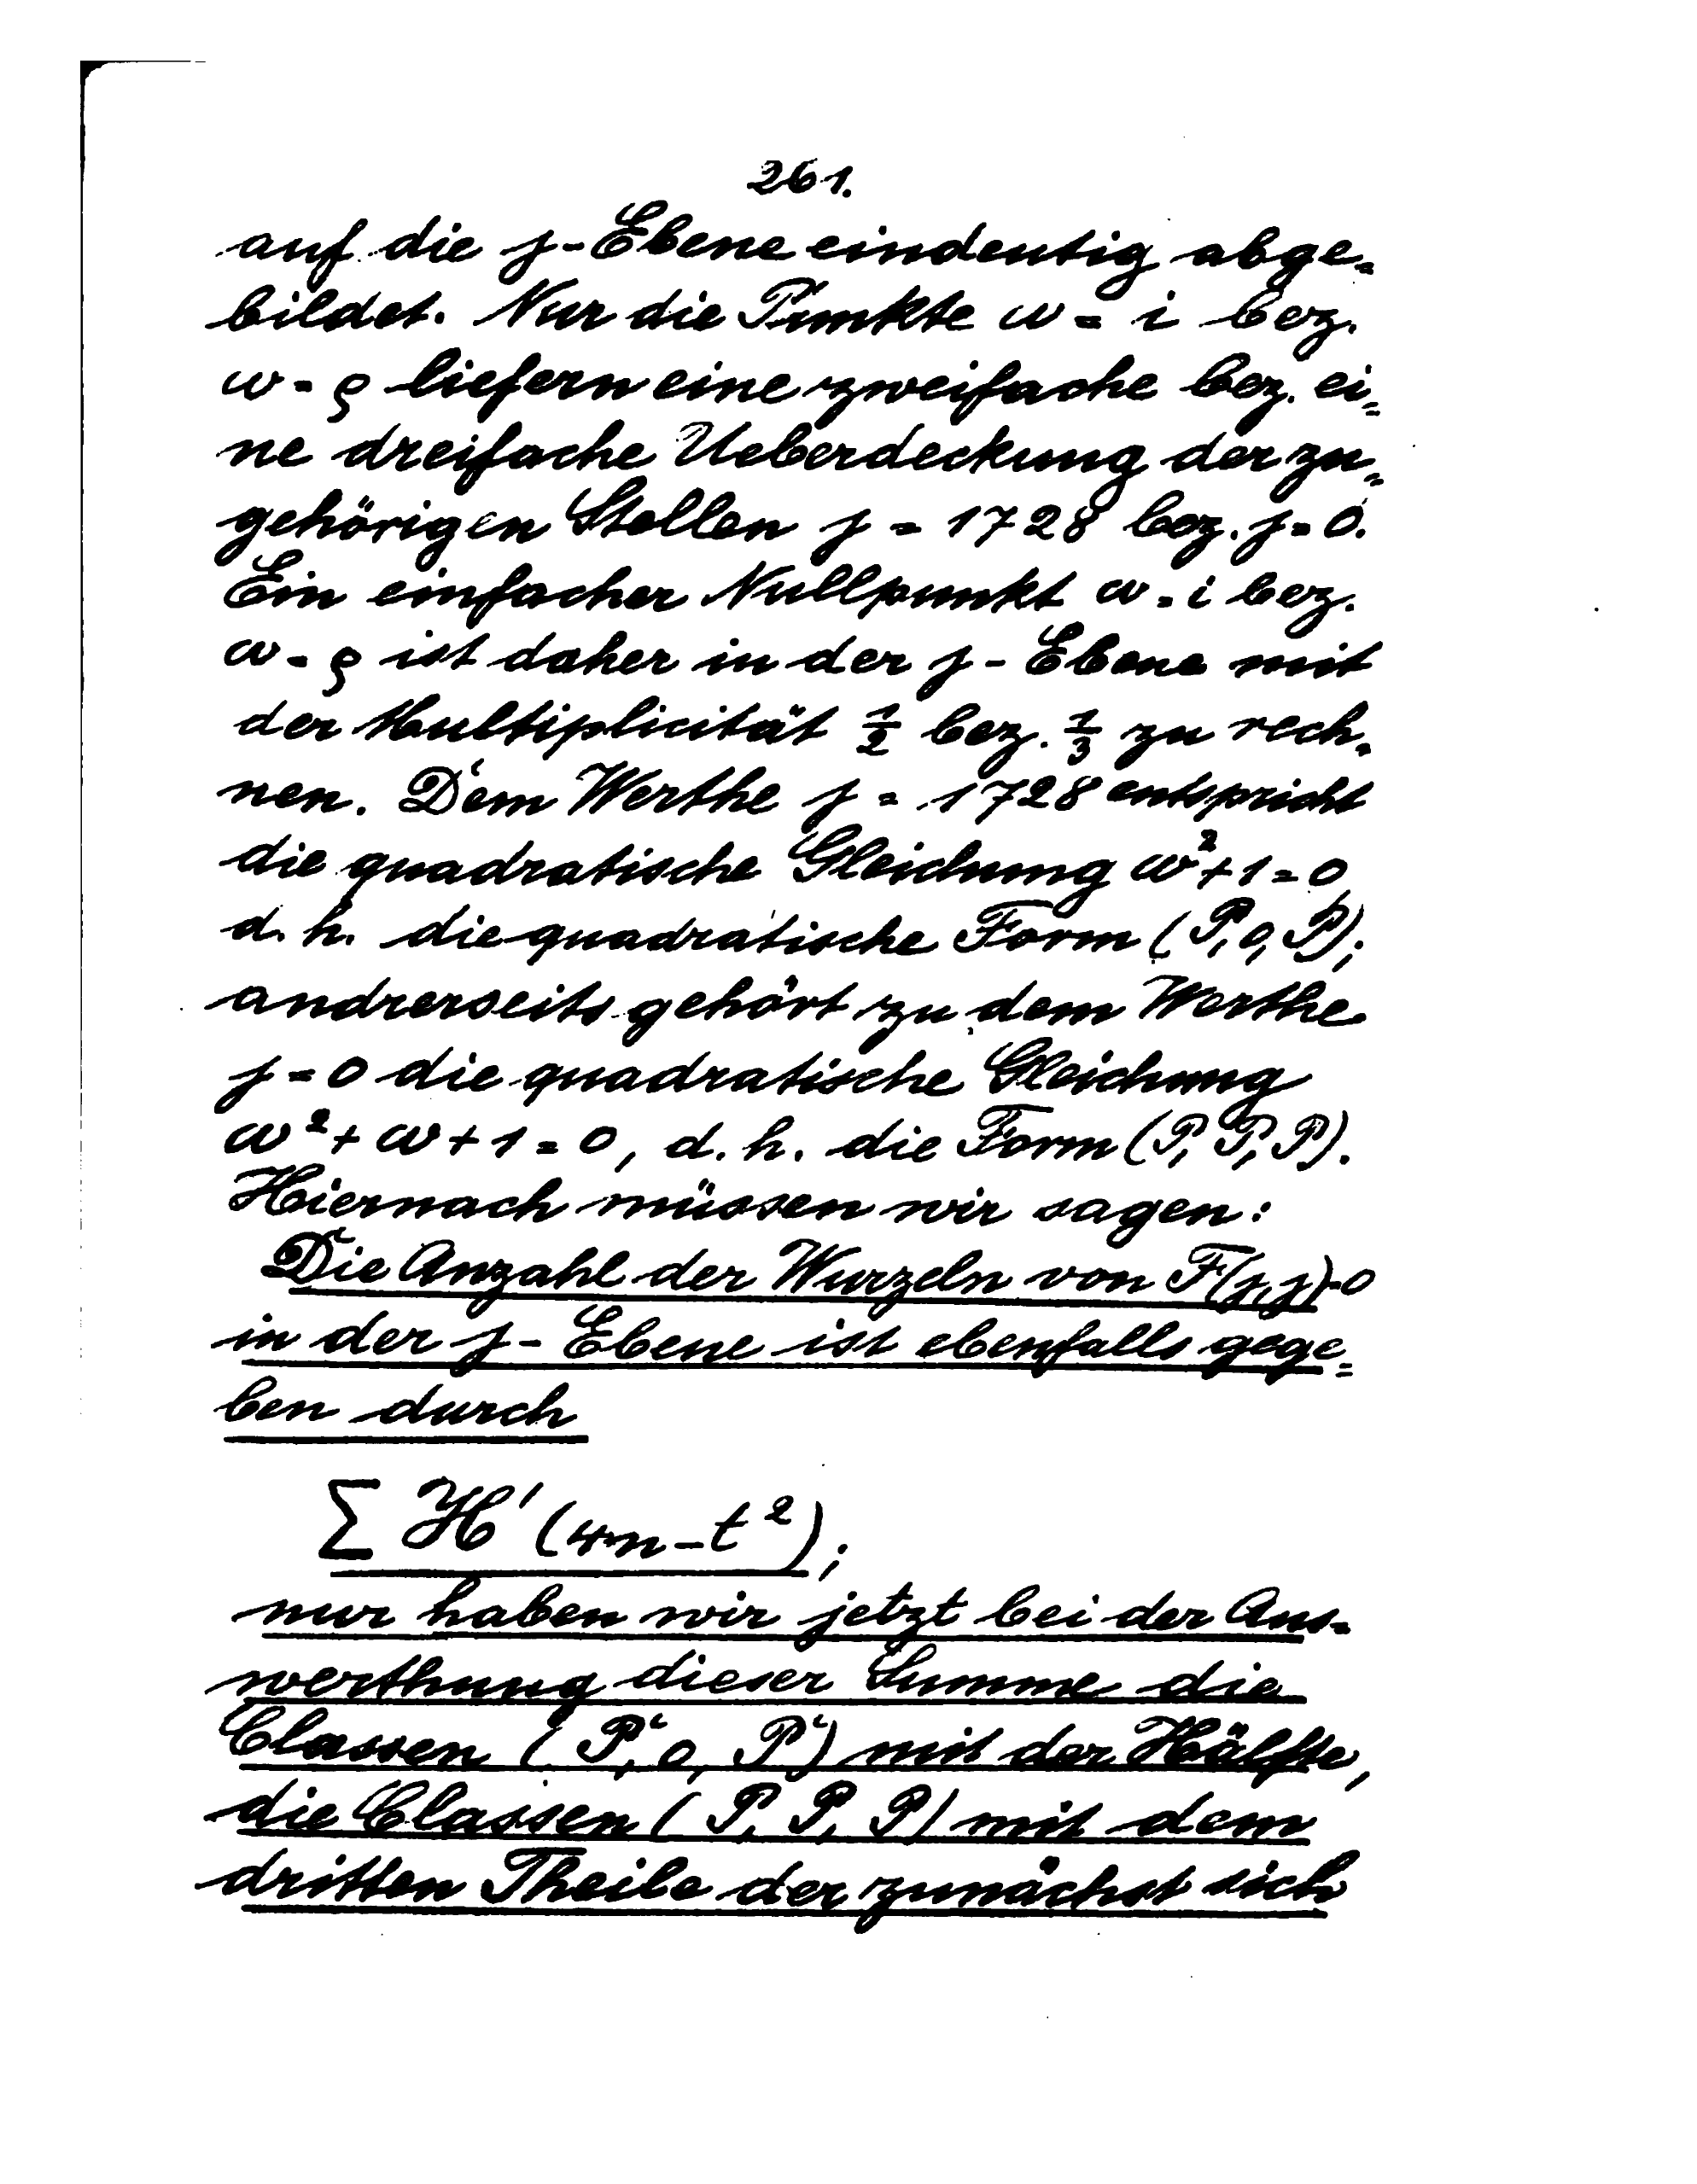 261.
auf die j-Ebene eindeutig abge=
bildet. Nur die Punkte ω = i bez.
ω = ϱ liefern eine zweifache bez. ei=
ne dreifache Ueberdeckung der zu=
gehörigen Stellen j = 1728 bez. j = 0.
Ein einfacher Nullpunkt ω = i bez.
ω = ϱ ist daher in der j-Ebene mit
der Multiplicität 1/2 bez. 1/3 zu rech=
nen. Dem Werthe j = 1728 entspricht
die quadratische Gleichung ω² + 1 = 0
d. h. die quadratische Form (P, 0, P);
andrerseits gehört zu dem Werthe
j = 0 die quadratische Gleichung
ω² + ω + 1 = 0, d. h. die Form (P, P, P).
Hiernach müssen wir sagen:
Die Anzahl der Wurzeln von F(j, j) = 0
in der j-Ebene ist ebenfalls gege=
ben durch
Σ H'(4n - t²);
nur haben wir jetzt bei der Aus=
werthung dieser Summe die
Classen (P, 0, P) mit der Hälfte,
die Classen (P, P, P) mit dem
dritten Theile der zunächst sich